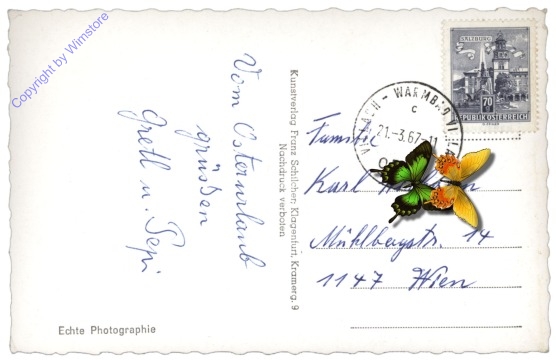 Copyright by Wimstore
Vom Osterurlaub
grüßen
Gretl u. Pepi
Echte Photographie
Kunstverlag Franz Schilcher, Klagenfurt, Kramerg. 9
Nachdruck verboten
SALZBURG
70
REPUBLIK ÖSTERREICH
WARMBAD
C
21.-3.67-11
Familie
Karl
Mühlbergstr. 14
1147 Wien